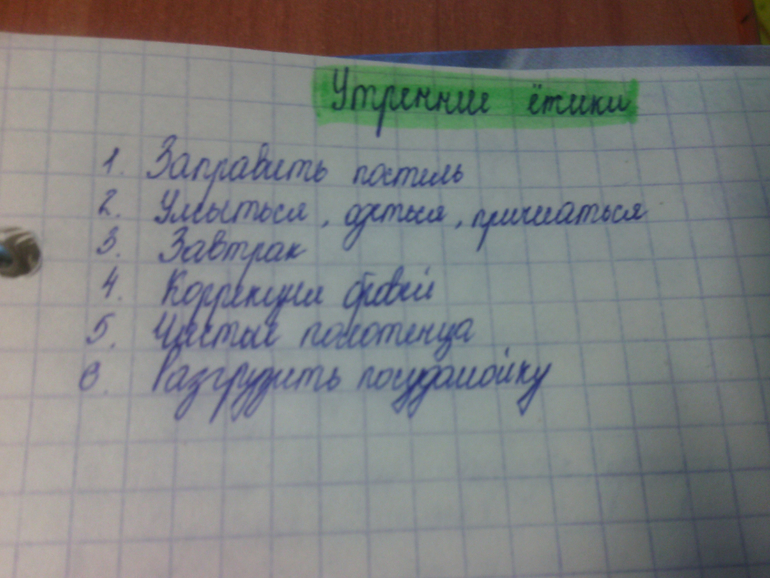 Утренние ётики
1. Заправить постель
2. Умыться, одеться, причесаться
3. Завтрак
4. Коррекция бровей
5. Чистые полотенца
6. Разгрузить посудамойку